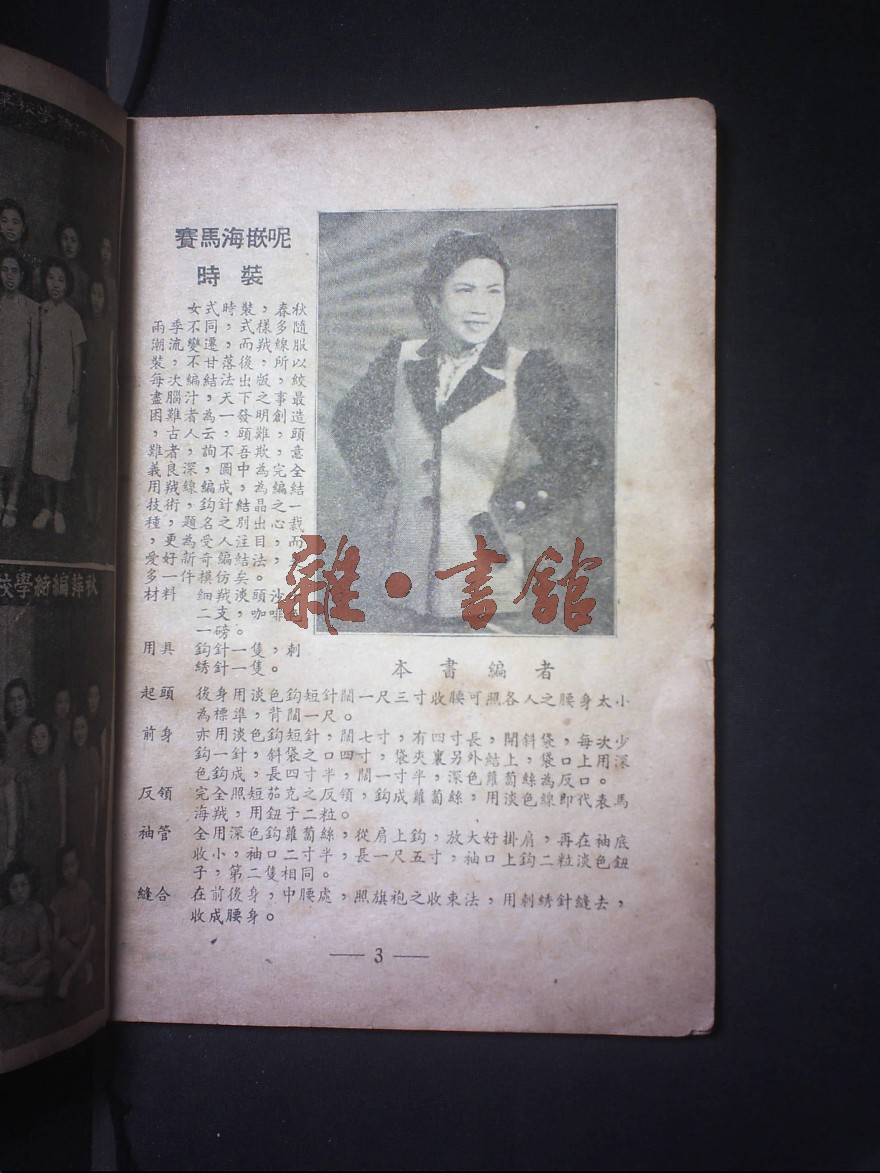 賽馬海嵌呢
時裝
女式時裝，春秋
兩季不同，式樣多隨
潮流變遷，而羢線服
裝，不甘落後，所以
每次編結法出版，絞
盡腦汁，天下之事最
困難者為一發明創造
，古人云，頭難，頭
難者，詢不吾欺，意
義良深，圖中為完全
用羢線編成，為編結
技術，鈎針結晶之一
種，題名之別出心裁
，更為受人注目，而
愛好新奇編結法，
多一件模仿矣。
材料 細羢淡頭沙
二支，咖啡色
一磅。
用具 鈎針一隻，刺
綉針一隻。
本書編者
起頭 後身用淡色鈎短針闊一尺三寸收腰可照各人之腰身太小
為標準，背闊一尺。
前身 亦用淡色鈎短針，闊七寸，有四寸長，開斜袋，每次少
鈎一針，斜袋之口四寸，袋夾裏另外結上，袋口上用深
色鈎成，長四寸半，闊一寸半，深色蘿蔔絲為反口。
反領 完全照短茄克之反領，鈎成蘿蔔絲，用淡色線即代表馬
海羢，用鈕子二粒。
袖管 全用深色鈎蘿蔔絲，從肩上鈎，放大好掛肩，再在袖底
收小，袖口二寸半，長一尺五寸，袖口上鈎二粒淡色鈕
子，第二隻相同。
縫合 在前後身，中腰處，照旗袍之收束法，用刺綉針縫去，
收成腰身。
— 3 —
雜·書館